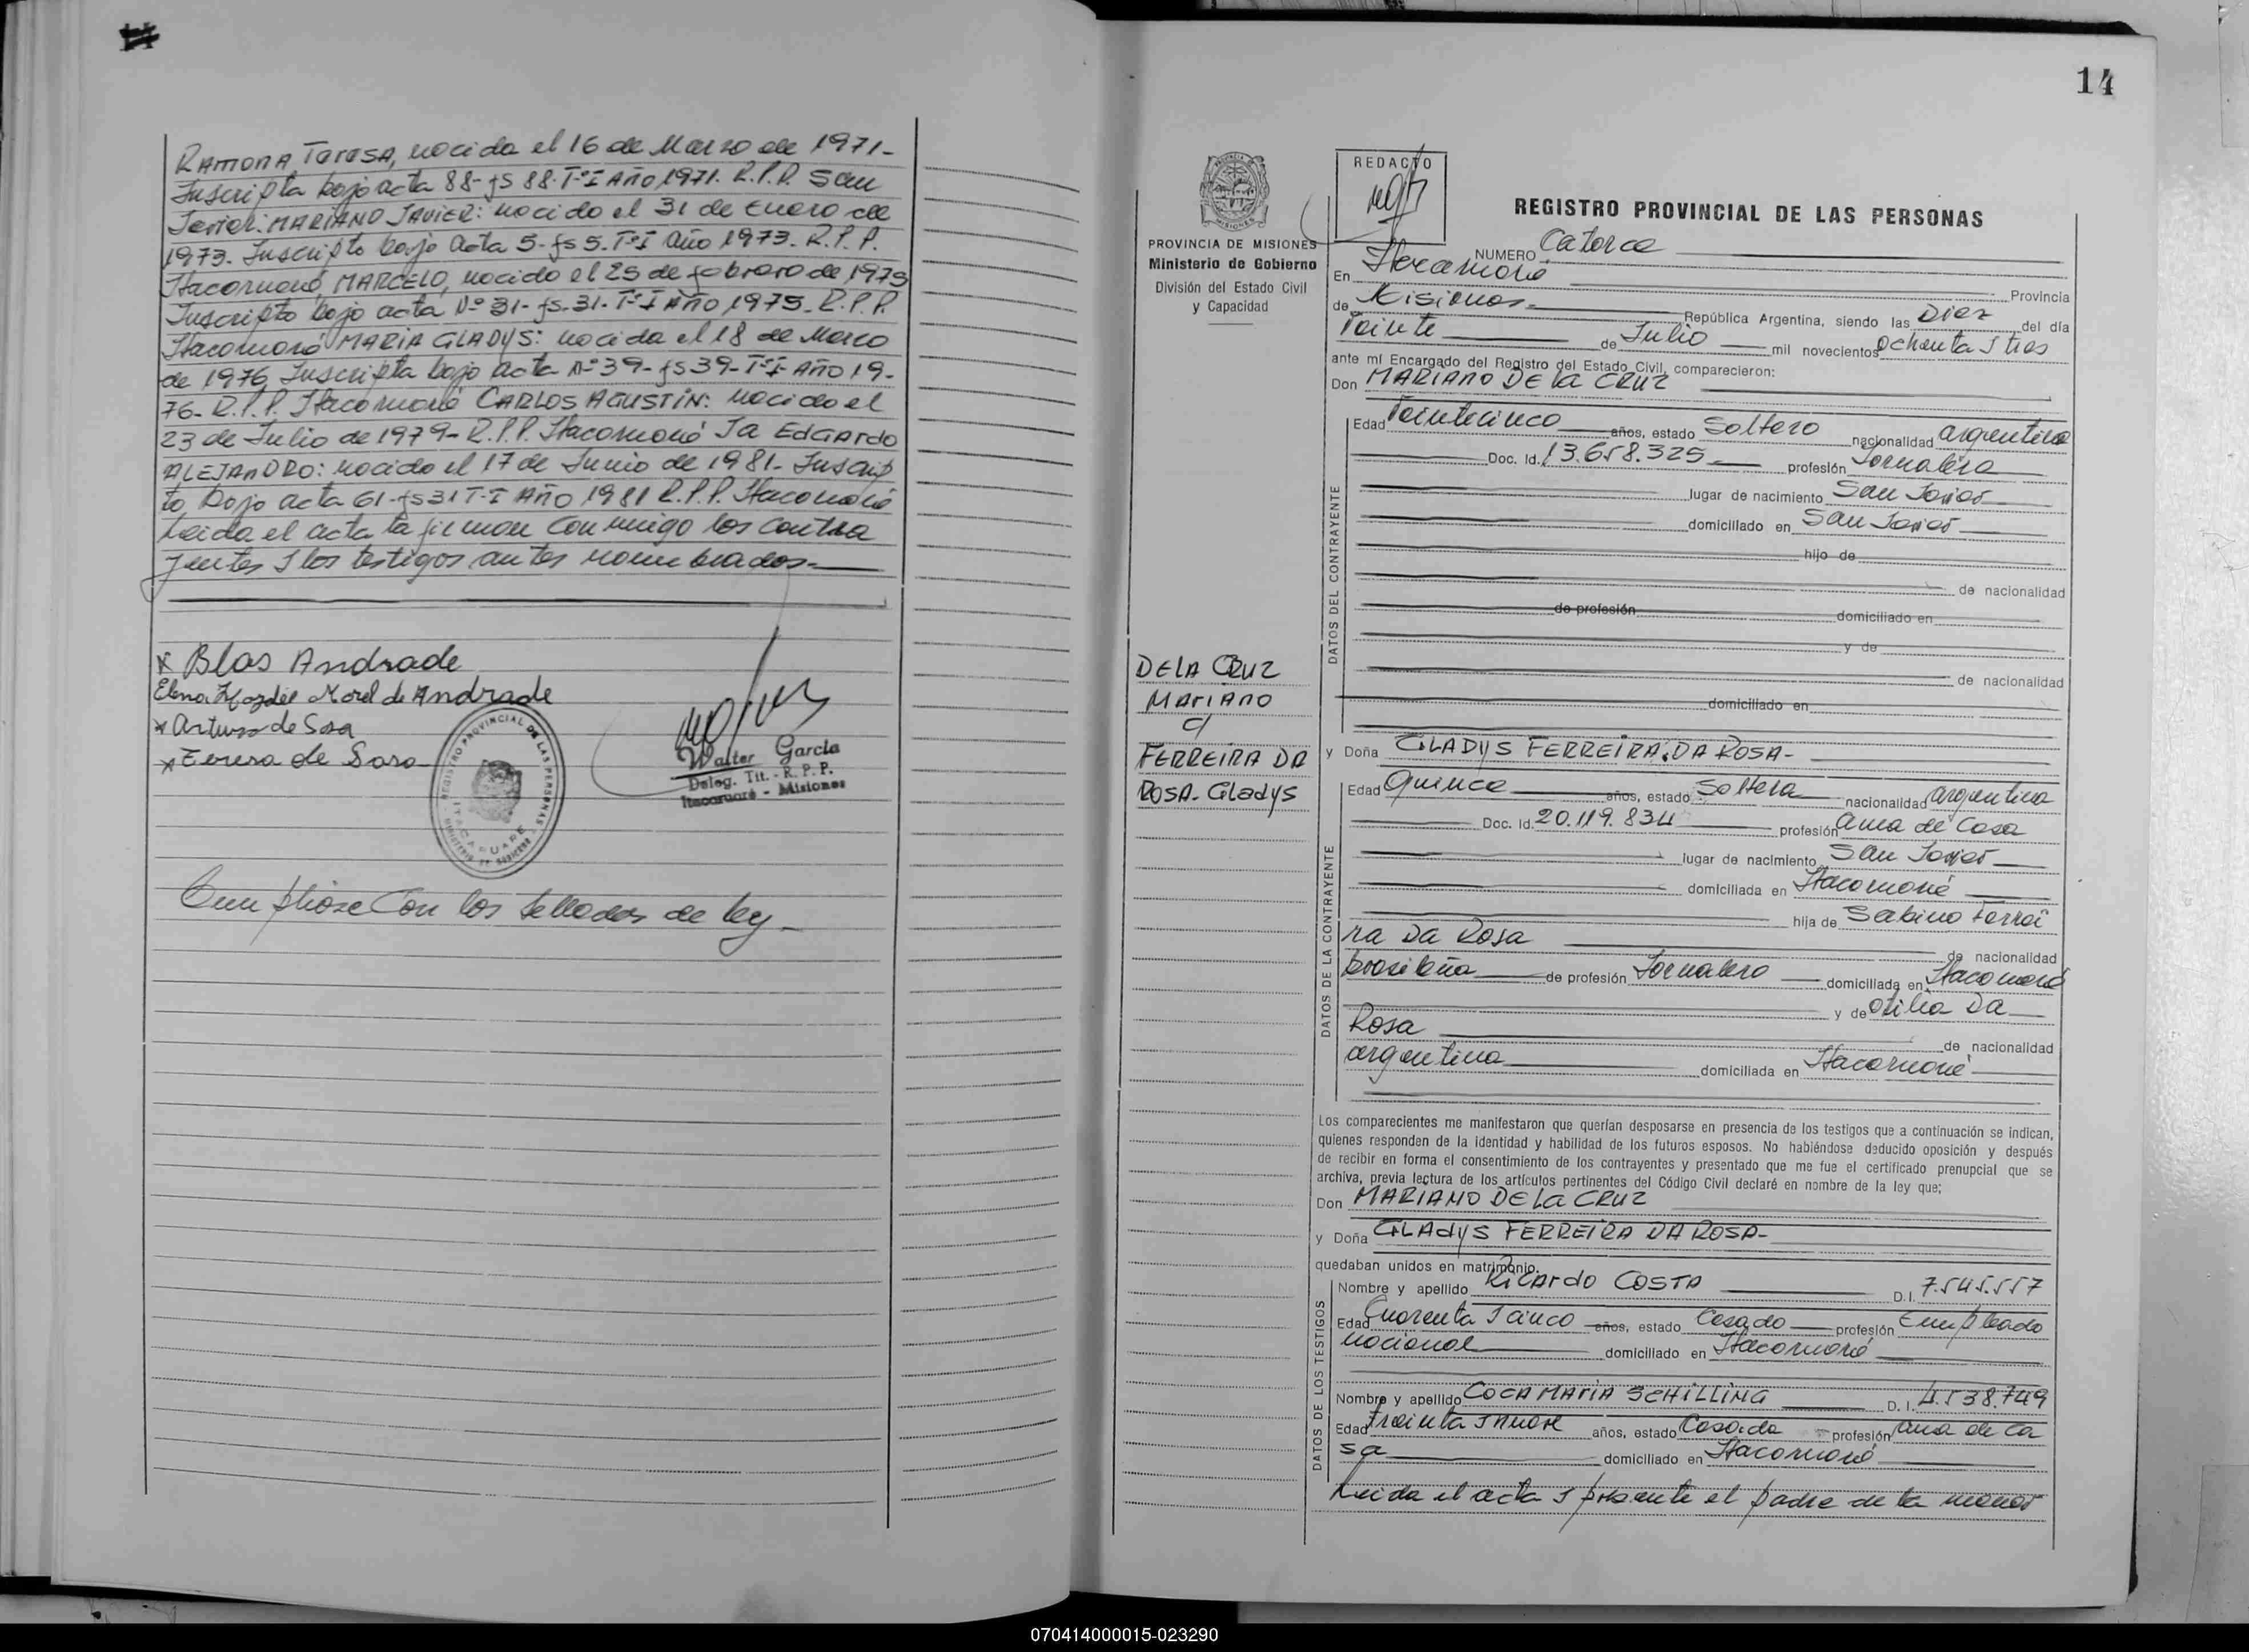 RAMONA TERESA, nacida el 16 de Marzo de 1971-
Inscripta bajo acta 88- fs 88- Tº I Año 1971. R.P.P. San
Javier. MARIANO JAVIER: nacido el 31 de Enero de
1973. Inscripto bajo acta 5- fs 5. Tº I año 1973. R.P.P.
Itacaruaré, MARCELO, nacido el 25 de febrero de 1975
Inscripto bajo acta Nº 31- fs. 31. Tº I Año 1975. R.P.P.
Itacaruaré MARIA GLADYS: nacida el 18 de Marzo
de 1976, Inscripta bajo acta Nº 39- fs 39- Tº I- Año 19-
76- R.P.P. Itacaruaré CARLOS AGUSTIN: nacido el
23 de Julio de 1979- R.P.P. Itacaruaré Ja EdGARdo
ALEJANDRO: nacido el 17 de Junio de 1981- Inscrip
to bajo acta 61- fs 31 T-I Año 1981 R.P.P. Itacaruaré
Leida el acta la firman conmigo los contra
yentes y los testigos antes nombrados.-
x Blas Andrade
Elena Morel de Andrade
x Arturo de Sosa
x Teresa de Sosa
REGISTRO PROVINCIAL DE LAS PERSONAS
ITACARUARE
Walter Garcia
Deleg. Tit. - R. P. P.
Itacaruaré - Misiones
Cumpliose con los sellados de ley -
14
PROVINCIA DE MISIONES
Ministerio de Gobierno
División del Estado Civil
y Capacidad
REDACTO
REGISTRO PROVINCIAL DE LAS PERSONAS
NUMERO Catorce
En Itacaruaré Provincia
de Misiones- República Argentina, siendo las Diez del día
Veinte de Julio mil novecientos Ochenta y tres
ante mí Encargado del Registro del Estado Civil, comparecieron:
Don MARIANO DE la CRUZ
DATOS DEL CONTRAYENTE
Edad Veinticinco años, estado Soltero nacionalidad argentina
Doc. Id. 13.658.325- profesión Jornalero
lugar de nacimiento San Javier
domiciliado en San Javier
hijo de
de nacionalidad
de profesión domiciliado en
y de
de nacionalidad
domiciliado en
DE LA CRUZ
MARIANO
c/
FERREIRA DA
ROSA- Gladys
y Doña GLADYS FERREIRA DA ROSA-
DATOS DE LA CONTRAYENTE
Edad Quince años, estado Soltera nacionalidad argentina
Doc. Id. 20.119.834 profesión ama de Casa
lugar de nacimiento San Javier
domiciliada en Itacaruaré
hija de Sabino Ferrei
ra Da Rosa de nacionalidad
brasileña de profesión Jornalero domiciliada en Itacaruaré
y de Otilia Da
Rosa de nacionalidad
argentina domiciliada en Itacaruaré
Los comparecientes me manifestaron que querían desposarse en presencia de los testigos que a continuación se indican,
quienes responden de la identidad y habilidad de los futuros esposos. No habiéndose deducido oposición y después
de recibir en forma el consentimiento de los contrayentes y presentado que me fue el certificado prenupcial que se
archiva, previa lectura de los artículos pertinentes del Código Civil declaré en nombre de la ley que;
Don MARIANO DE LA CRUZ
y Doña GLADYS FERREIRA DA ROSA-
quedaban unidos en matrimonio.
DATOS DE LOS TESTIGOS
Nombre y apellido Ricardo COSTA D.I. 7.545.557
Edad Cuarenta y cinco años, estado Casado profesión Empleado
nacional domiciliado en Itacaruaré
Nombre y apellido COCA MARIA SCHILLING D. I. 4.538.749
Edad treinta y nueve años, estado Casada profesión ama de ca
sa domiciliado en Itacaruaré
Leida el acta y presente el padre de la menor
070414000015-023290